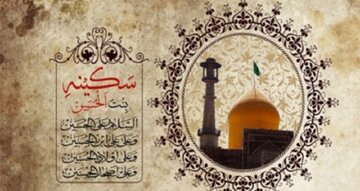 سَكينهِ
بنت الحُسَین
السَّلامُ عَلَی الحُسَین
وَ عَلی عَلِیِّ بنِ الحُسَین
وَ عَلی اَولادِ الحُسَین
وَ عَلی اَصحابِ الحُسَین